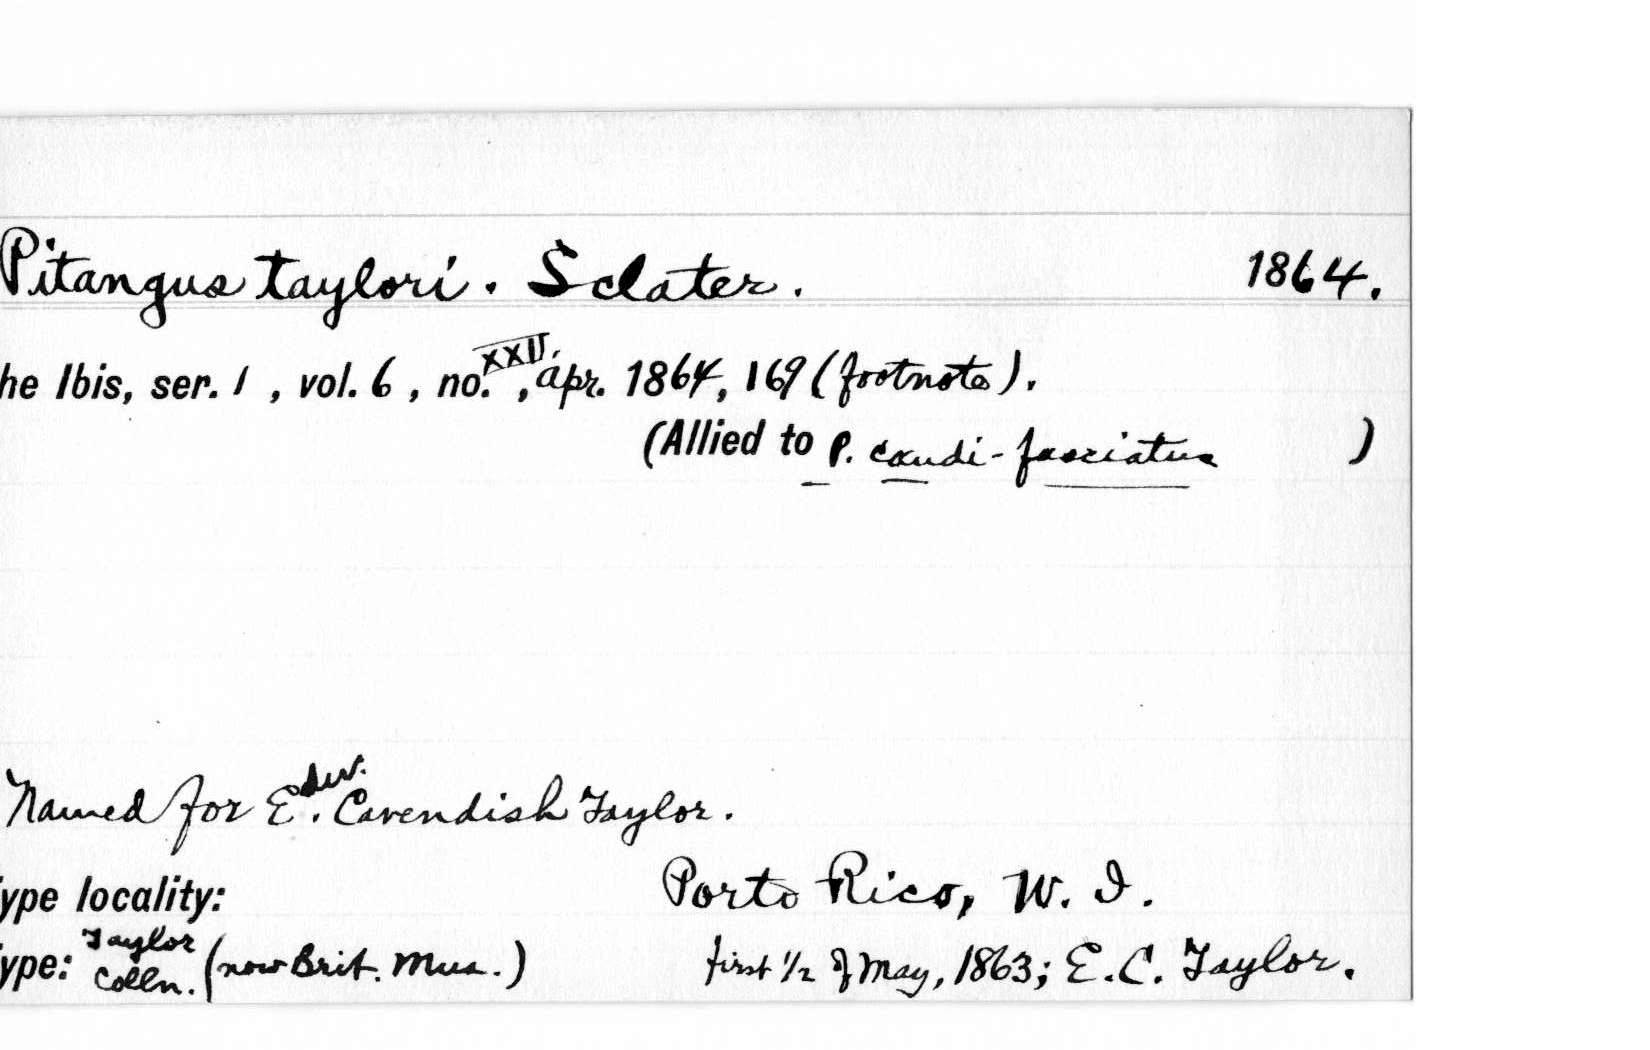 Pitangus taylori. Sclater. 1864.
he Ibis, ser. 1 , vol. 6 , no. XXII. , Apr. 1864, 169 (footnote).
(Allied to P. caudi-fasciatus )
Named for Edw. Cavendish Taylor.
ype locality: Porto Rico, W. I.
ype: Taylor Colln. (now Brit. Mus.) first 1/2 of May, 1863; E. C. Taylor.